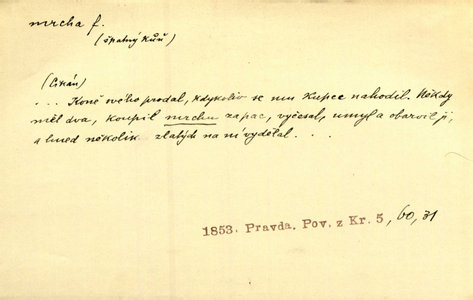 mrcha f.
(špatný kůň)
(Cikán)
... Koně svého prodal, kdykoliv se mu kupec nahodil. Někdy
měl dva, koupil mrchu za pac, vyčesal, umyl a obarvil ji,
a hned několik zlatých na ní vydělal...
1853. Pravda, Pov. z Kr. 5, 60, 31